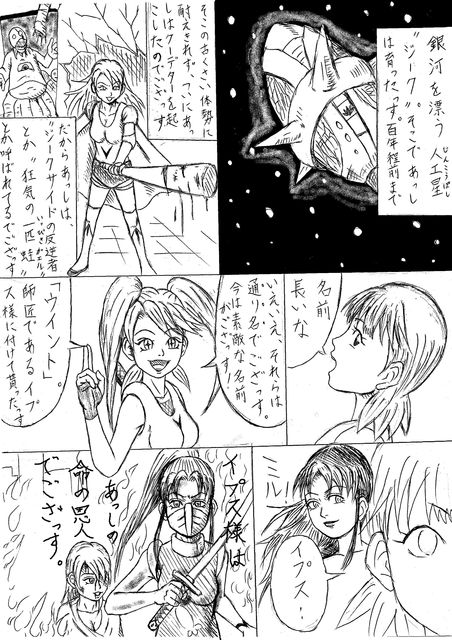 銀河を漂う人工星
じんこうぼし
"ジーク"そこであっし
は育ったっす。百年程前まで
そこの古くさい体勢に
耐えきれず、ついにあっ
しはクーデターを起
こしたのでござっす
だからあっしは、
"ジークサイドの反逆者"
とか"狂気の一匹蛙"
いっぴきガエル
とか呼ばれてるでござっす
名前
長いな
いえいえ、それらは
通り名でござっす。
今は素敵な名前
がござっす!
「ウイント」。
師匠であるイプ
ス様に付けて貰ったっす
ミルノ
イプス!
イプス様は
あっしの
命の恩人
でござっす。